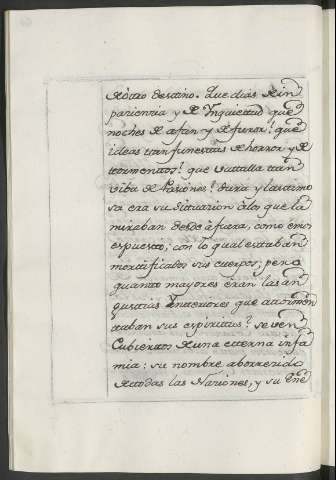 Rôtro destino. Que dias de in
paciencia y de Inquietud que
noches de afan, y de furor! que
ideas tan funestas de horror y de
tormentos! que vattalla tan
viba de Pasiones! dura y lastimo
sa era su situacion à los que la
miraban desde àfuera, como èmos
espuesto; con lo qual estaban
mortificados sus cuerpos; pero
quanto mayores eran las an
gustias Ynteriores que atormen
taban sus espiritus? Se ven
Cubiertos de una eterna infa
mia: su nombre aborrecido
de todas las Naciones, y su